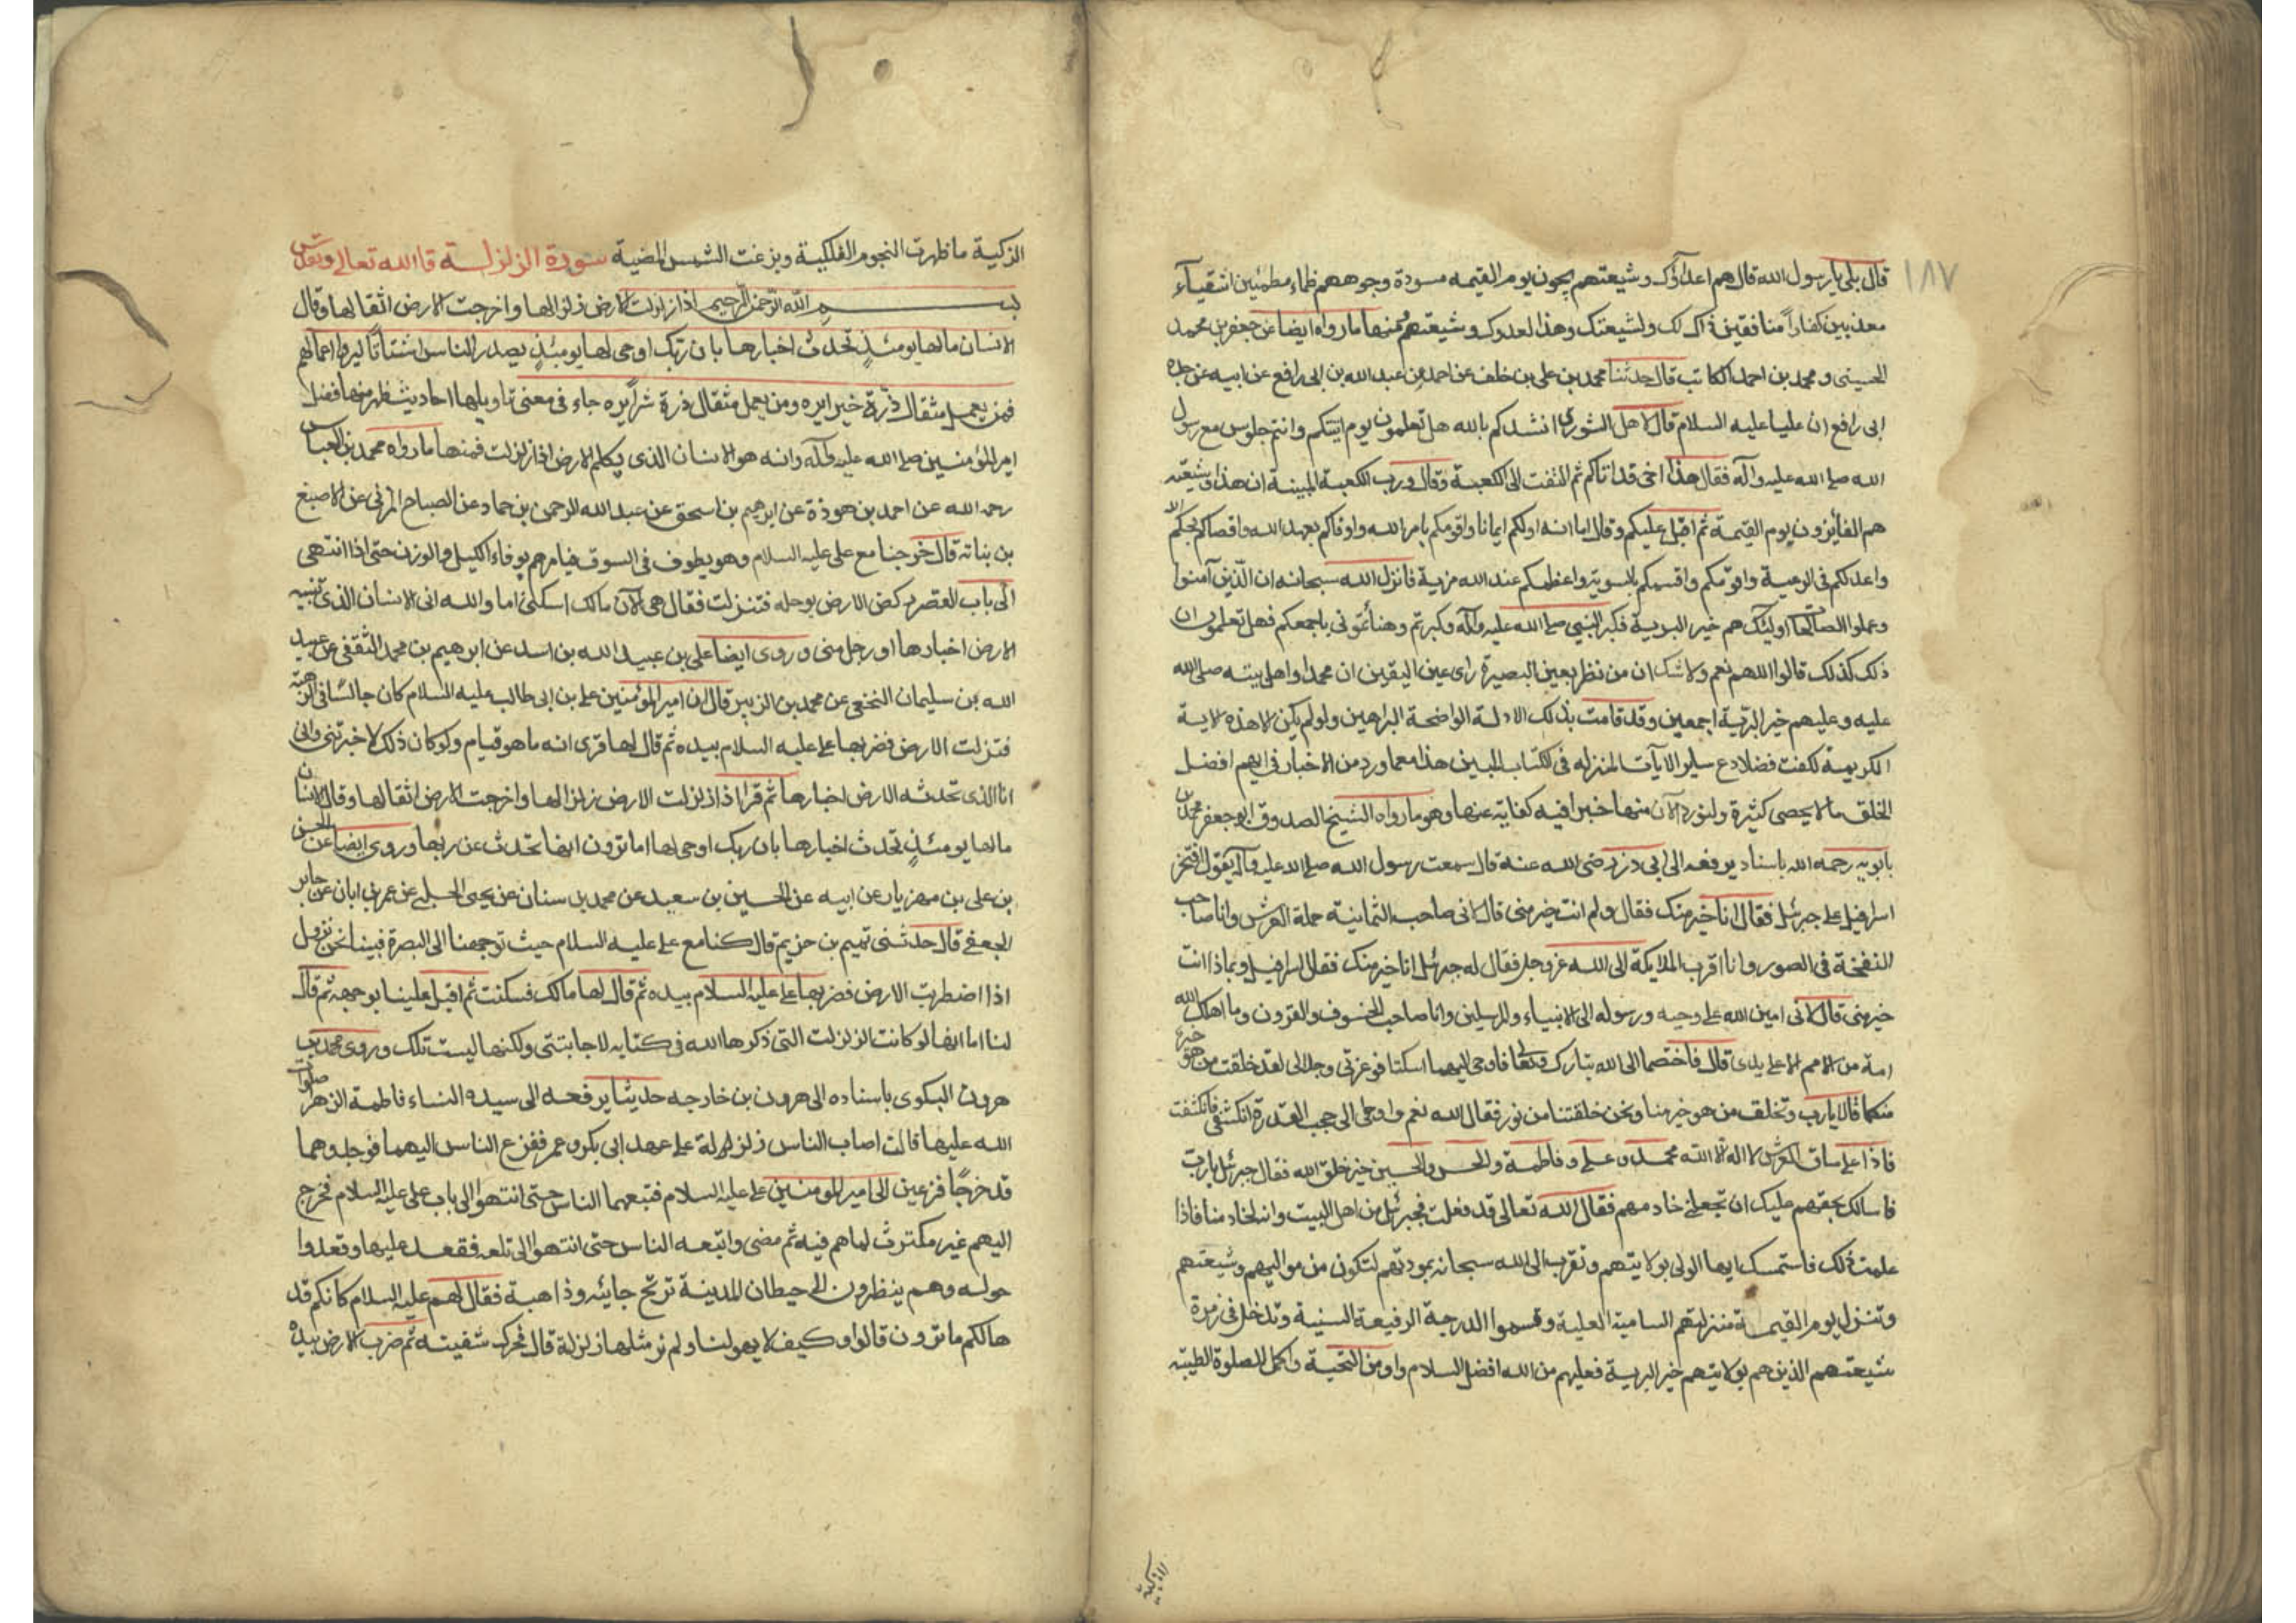 ١٨٧
قال بلى يا رسول الله قال هم اعدآؤك وشيعتهم يجون يوم القيمه مسودة وجوههم ظماء مطمئين اشقيآء
معذبين كفارا منافقين ذاك لك ولشيعتك وهذا لعدوك وشيعتهم ومنها ما رواه ايضا عن جعفر بن محمد
الحسينى ومحمد بن احمد الكاتب قال حدثنا محمد بن على بن خلف عن احمد بن عبد الله بن ابى رافع عن ابيه عن جده
ابى رافع ان عليا عليه السلام قال لاهل الشورى انشدكم بالله هل تعلمون يوم اتيتكم وانتم جلوس مع رسول
الله صلى الله عليه وآله فقال هذا اخى قد اتاكم ثم التفت الى الكعبة وقال ورب الكعبة المبينة ان هذا وشيعته
هم الفايزون يوم القيمة ثم اقبل عليكم وقال اما انه اولكم ايمانا واقومكم بامر الله واوفاكم بعهد الله واقضاكم بحكم الله
واعدلكم فى الرعية واقسمكم بالسوية واعظمكم عند الله مزية فانزل الله سبحانه ان الذين آمنوا
وعملوا الصالحات اوليئك هم خير البرية فكبر النبي صلى الله عليه وآله وكبرتم وهنأتمونى باجمعكم فهل تعلمون ان
ذلك كذلك قالوا اللهم نعم ولا شك ان من نظر بعين البصيرة راى عين اليقين ان محمدا واهل بيته صلى الله
عليه وعليهم خير البرية اجمعين وقد قامت بذلك الادلة الواضحة البراهين ولو لم يكن الا هذه الاية
الكريمة لكفت فضلا دع ساير الآيات المنزله فى الكتاب المبين هذا مع ما ورد من الاخبار فى انهم افضل
الخلق ما لا يحصى كثيرة ولنورد الآن منها خبرا فيه كفاية عنها وهو ما رواه الشيخ الصدوق ابو جعفر محمد بن
بابويه رحمه الله باسناد يرفعه الى ابى ذر رضى الله عنه قال سمعت رسول الله صلى الله عليه وآله يقول افتخر
اسرافيل على جبرئيل فقال انا خير منك فقال ولم انت خير منى قال لانى صاحب الثمانية حملة العرش وانا صاحب
النفخة فى الصور وانا اقرب الملايكة الى الله عز وجل فقال له جبرئيل انا خير منك فقال اسرافيل وبماذا انت
خير منى قال لانى امين الله على وحيه ورسوله الى الانبياء والمرسلين وانا صاحب الخسوف والقرون وما اهلك الله
امة من الامم الا على يدى قال فاختصما الى الله تبارك وتعالى فاوحى اليهما اسكتا فوعزتى وجلالى لقد خلقت من هو خير
منكما قالا يا رب وتخلق من هو خير منا ونحن خلقتنا من نور فقال الله نعم واوحى الى حجب القدرة انكشفى فانكشفت
فاذا على ساق العرش لا اله الا الله محمد وعلى وفاطمة والحسن والحسين خير خلق الله فقال جبرئيل يا رب
فاسالك بحقهم عليك ان تجعلنى خادمهم فقال الله تعالى قد فعلت فجبرئيل من اهل البيت وانه لخادمنا فاذا
علمت ذلك فاستمسك ايها الولى بولايتهم وتقرب الى الله سبحانه بمودتهم لتكون من مواليهم وشيعتهم
وتنزل يوم القيمة منزلتهم السامية العلية وقسموا الدرجة الرفيعة السنية وتدخل فى زمرة
شيعتهم الذين هم بولايتهم خير البرية فعليهم من الله افضل السلام واومن التحية واكمل الصلوة الطيبة
الزكية
الزكية ما ظهرت النجوم الفلكية وبزغت الشمس المضية سورة الزلزلة قال الله تعالى وتقدس
بسم الله الرحمن الرحيم اذا زلزلت الارض زلزالها واخرجت الارض اثقالها وقال
الانسان مالها يومئذٍ تحدث اخبارها بان ربك اوحى لها يومئذٍ يصدر الناس اشتاتا ليروا اعمالهم
فمن يعمل مثقال ذرة خيرا يره ومن يعمل مثقال ذرة شرا يره جاء فى معنى تاويلها احاديث ظهر منها فضل
امير المؤمنين صلى الله عليه وآله وانه هو الانسان الذى يكلم الارض اذا زلزلت فمنها ما رواه محمد بن العباس
رحمه الله عن احمد بن هوذة عن ابرهيم بن اسحق عن عبد الله الرحمن بن حماد عن الصباح المزنى عن الاصبغ
بن نباته قال خرجنا مع على عليه السلام وهو يطوف فى السوق فيامرهم بوفاء الكيل والوزن حتى اذا انتهى
الى باب القصر ركض الارض برجله فتزلزلت فقال هى الآن مالك اسكنى اما والله انى الانسان الذى تنبيه
الارض اخبارها او رجل منى وروى ايضا على بن عبيد الله بن اسد عن ابرهيم بن محمد الثقفى عن عبيد
الله بن سليمان النخعى عن محمد بن الزبير قال ان امير المؤمنين على بن ابى طالب عليه السلام كان جالسا فى الرحبة
فتزلزلت الارض فضربها على عليه السلام بيده ثم قال لها قرى انه ما هو قيام ولو كان ذلك لاخبرتنى وانى
انا الذى تحدثه الارض اخبارها ثم قرا اذا زلزلت الارض زلزالها واخرجت الارض اثقالها وقال الانسان
مالها يومئذٍ تحدث اخبارها بان ربك اوحى لها اما ترون انها تحدث عن ربها وروى ايضا عن الحسن
بن على بن مهزيار عن ابيه عن الحسين بن سعيد عن محمد بن سنان عن يحيى الحلبى عن عمر بن ابان عن جابر
الجعفى قال حدثنى تميم بن حزيم قال كنا مع على عليه السلام حيث توجهنا الى البصرة فبينا نحن نزول
اذا اضطربت الارض فضربها على عليه السلام بيده ثم قال لها مالك فسكنت ثم اقبل علينا بوجهه ثم قال
لنا اما انها لو كانت الزلزلت التى ذكرها الله فى كتابه لاجابتنى ولكنها ليست تلك وروى محمد بن
هرون البكرى باسناده الى هرون بن خارجه حديثا يرفعه الى سيدة النساء فاطمة الزهرا صلوات
الله عليها قالت اصاب الناس زلزلة على عهد ابى بكر وعمر ففزع الناس اليهما فوجدوهما
قد خرجا فزعين الى امير المومنين على عليه السلام فتبعهما الناس حتى انتهوا الى باب على عليه السلام فخرج
اليهم غير مكترث لما هم فيه ثم مضى واتبعه الناس حتى انتهوا الى تلعه فقعد عليها وقعدوا
حوله وهم ينظرون الى حيطان المدينة ترتج جايئه وذاهبة فقال لهم عليه السلام كانكم قد
هالكم ما ترون قالوا وكيف لا يهولنا ولم نر مثلها زلزلة قال فحرك شفيته ثم ضرب الارض بيده